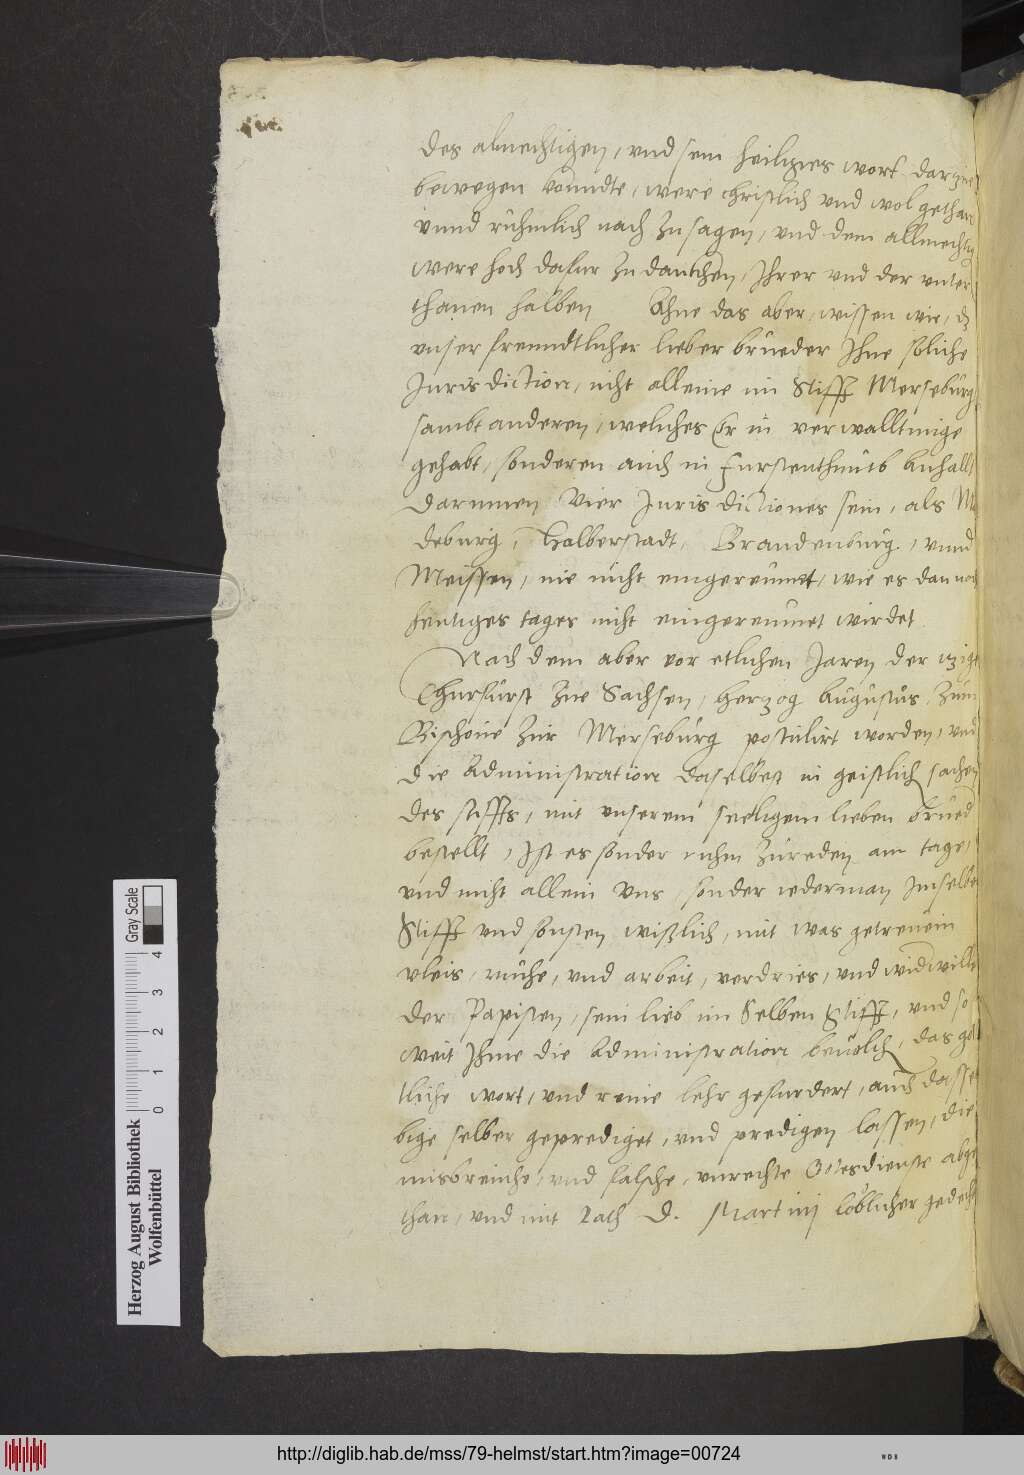 des almechtigen, vnd sein heiliges wort darzue
bewegen konndte, were christlich vnd wol gethan
vnnd rühmlich nach zu sagen, vnd dem allmechtig
were hoch dafur zu dancken, Ihrer vnd der vnter
thanen halben Ahne das aber, wissen wir, dz
vnser freundtlicher lieber brueder Ihne soliche
Jurisdiction, nicht alleine im Stifft Merseburg
sambt anderen, weliches Er in verwalltunge
gehabt, sonderen auch in Furstenthumb Anhallt
darinnen Vier Jurisdictiones sein, als Ma
deburg, Halberstadt, Brandenburg, vnnd
Meissen, nie nicht eingereumet, wie es dan noch
heutiges tages nicht eingereumet wirdet
Nach dem aber vor etlichen Jaren der itzige
Churfurst zue Sachsen, Hertzog Augustus, zum
Bischoue zur Merseburg postulirt worden, vnd
die Administration daselbest in geistlich sachen
des stiffts, mit vnserem seeligem lieben brued
bestellt, Ist es sonder ruhm zureden am tage,
vnd nicht allein Vns, sonder iederman Imselben
Stifft vnd sonsten wißlich, mit was getreuem
vleis, muhe, vnd arbeit, verdries, vnd widwille
der Papisten, sein lieb im Selben Stifft, vnd so
weit Ihme die Administration beuolch, das gö
tliche wort, vnd reine lehr gefurdert, auch dassel
bige selber geprediget, vnd predigen lassen, die
misbreuche, vnd falsche, vnrechte Gotesdienste abge
than, vnd mit Rath D. Martinj löblicher gedecht
Herzog August Bibliothek
Wolfenbüttel
Gray Scale
0 1 2 3 4
http://diglib.hab.de/mss/79-helmst/start.htm?image=00724